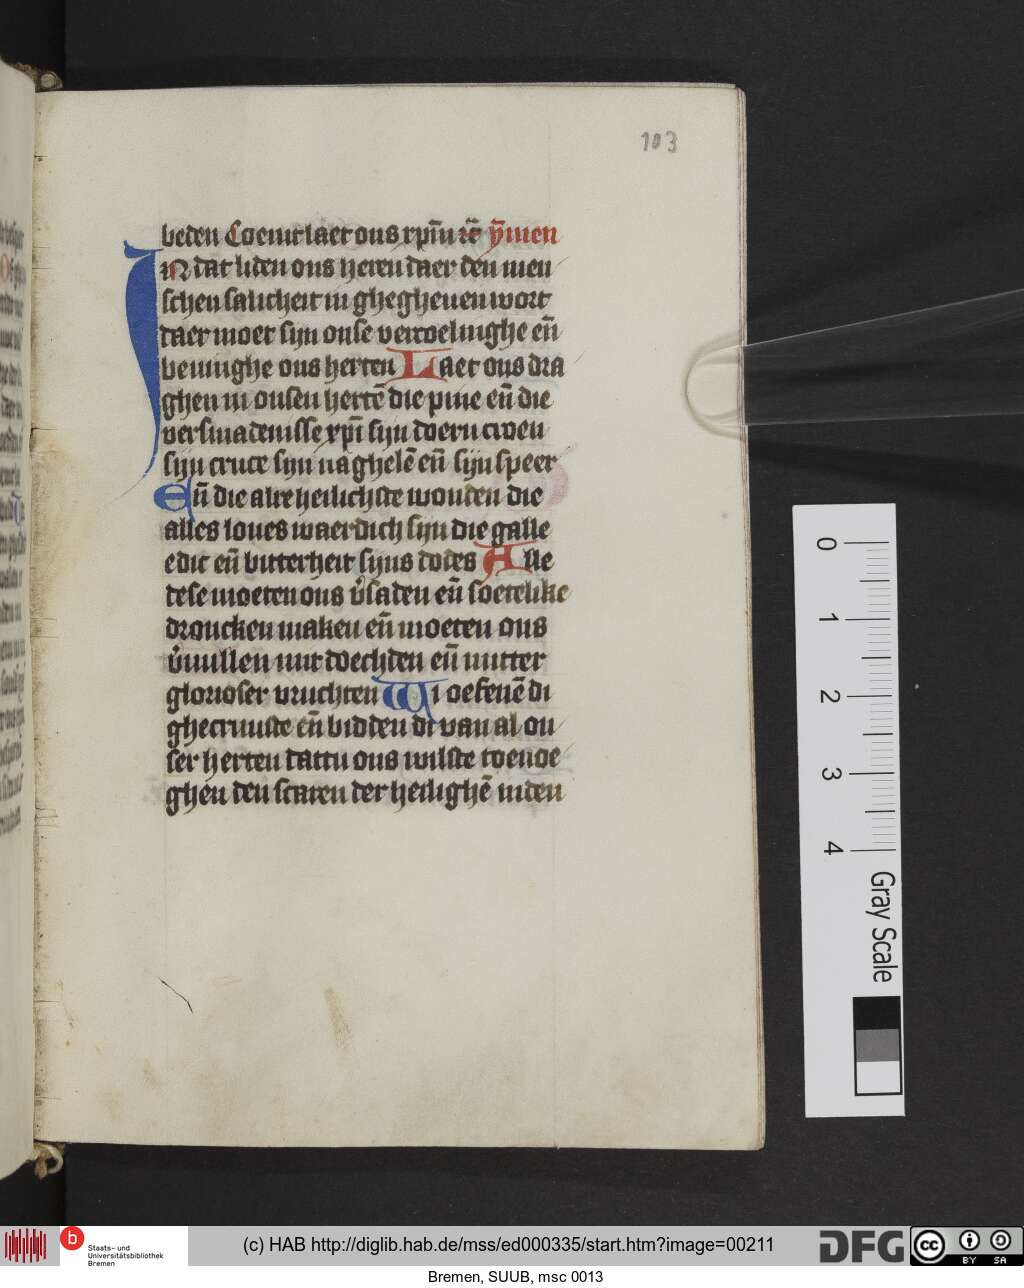 103
beden Coemt laet ons xpm̄ rē ȳmen
IN dat liden ons heren daer den men
schen salicheit in ghegheuen wort
daer moet sijn onse vercoelinghe eñ
beuinghe ons herten Laet ons dra
ghen in onsen hertē die pine eñ die
versmadenisse xpī sijn doern croen
sijn cruce sijn naghelē eñ sijn speer
Eñ die alre heilichste wonden die
alles loues waerdich sijn die galle
edic eñ bitterheit sijns dodes Alle
dese moeten ons v̉saden eñ soetelike
droncken maken eñ moeten ons
v̉uullen mit doechden eñ mitter
glorioser vruchten Wi oefenē di
ghecruuste eñ bidden di van al on
ser herten dattu ons wilste toenoe
ghen den scaren der heilighē inden
0
1
2
3
4
Gray Scale
b
Staats- und
Universitätsbibliothek
Bremen
(c) HAB http://diglib.hab.de/mss/ed000335/start.htm?image=00211
DFG
cc
BY SA
Bremen, SUUB, msc 0013